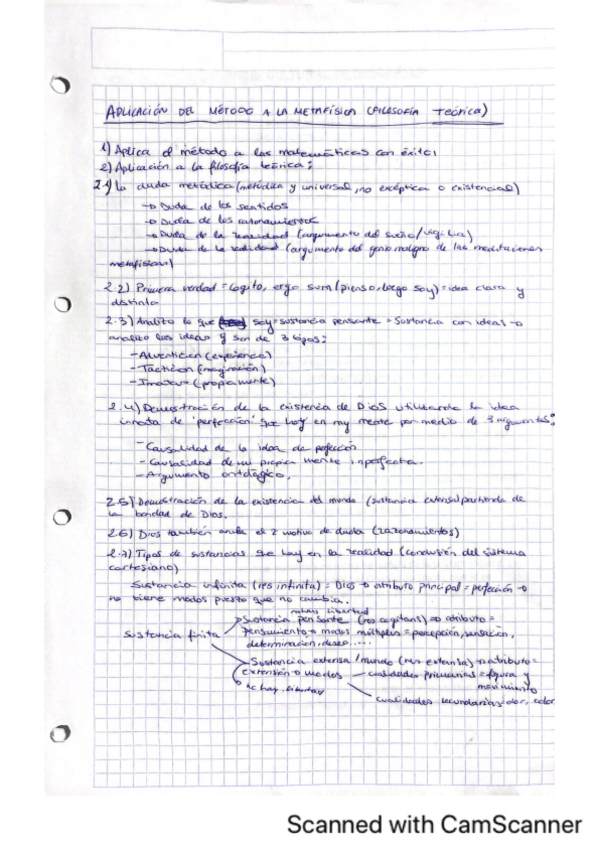 APLICACIÓN DEL MÉTODO A LA METAFÍSICA (FILOSOFÍA TEÓRICA)
1) Aplica el método a las matemáticas con éxito.
2) Aplicación a la filosofía teórica:
2.1) La duda metódica (metódica y universal, no escéptica o existencial)
→ Duda de los sentidos
→ Duda de los razonamientos
→ Duda de la realidad (argumento del sueño/vigilia)
→ Duda de la realidad (argumento del genio maligno de las meditaciones
metafísicas)
2.2) Primera verdad = Cogito, ergo sum (pienso, luego soy) = idea clara y
distinta
2.3) Analizo lo que soy = sustancia pensante = Sustancia con ideas →
analizo las ideas y son de 3 tipos:
- Adventicias (experiencia)
- Facticias (imaginación)
- Innatas (propia mente)
2.4) Demostración de la existencia de Dios utilizando la idea
innata de 'perfección' que hay en my mente por medio de 3 argumentos:
- Causalidad de la idea de perfección
- Causalidad de mi propia mente imperfecta.
- Argumento ontológico.
2.5) Demostración de la existencia del mundo (sustancia extensa) partiendo de
la bondad de Dios.
2.6) Dios también anula el 2 motivo de duda (razonamientos)
2.7) Tipos de sustancias que hay en la realidad (conclusión del sistema
cartesiano)
Sustancia infinita (res infinita) = Dios → atributo principal = perfección →
no tiene modos puesto que no cambia.
libertad
Sustancia pensante (res cogitans) → atributo =
Sustancia finita
pensamiento → modos múltiples = percepción, sensación,
determinación, deseo....
Sustancia extensa / mundo (res extensa) → atributo =
extensión → modos
cualidades primarias = figura y
movimiento
no hay libertad
cualidades secundarias: olor, color
Scanned with CamScanner